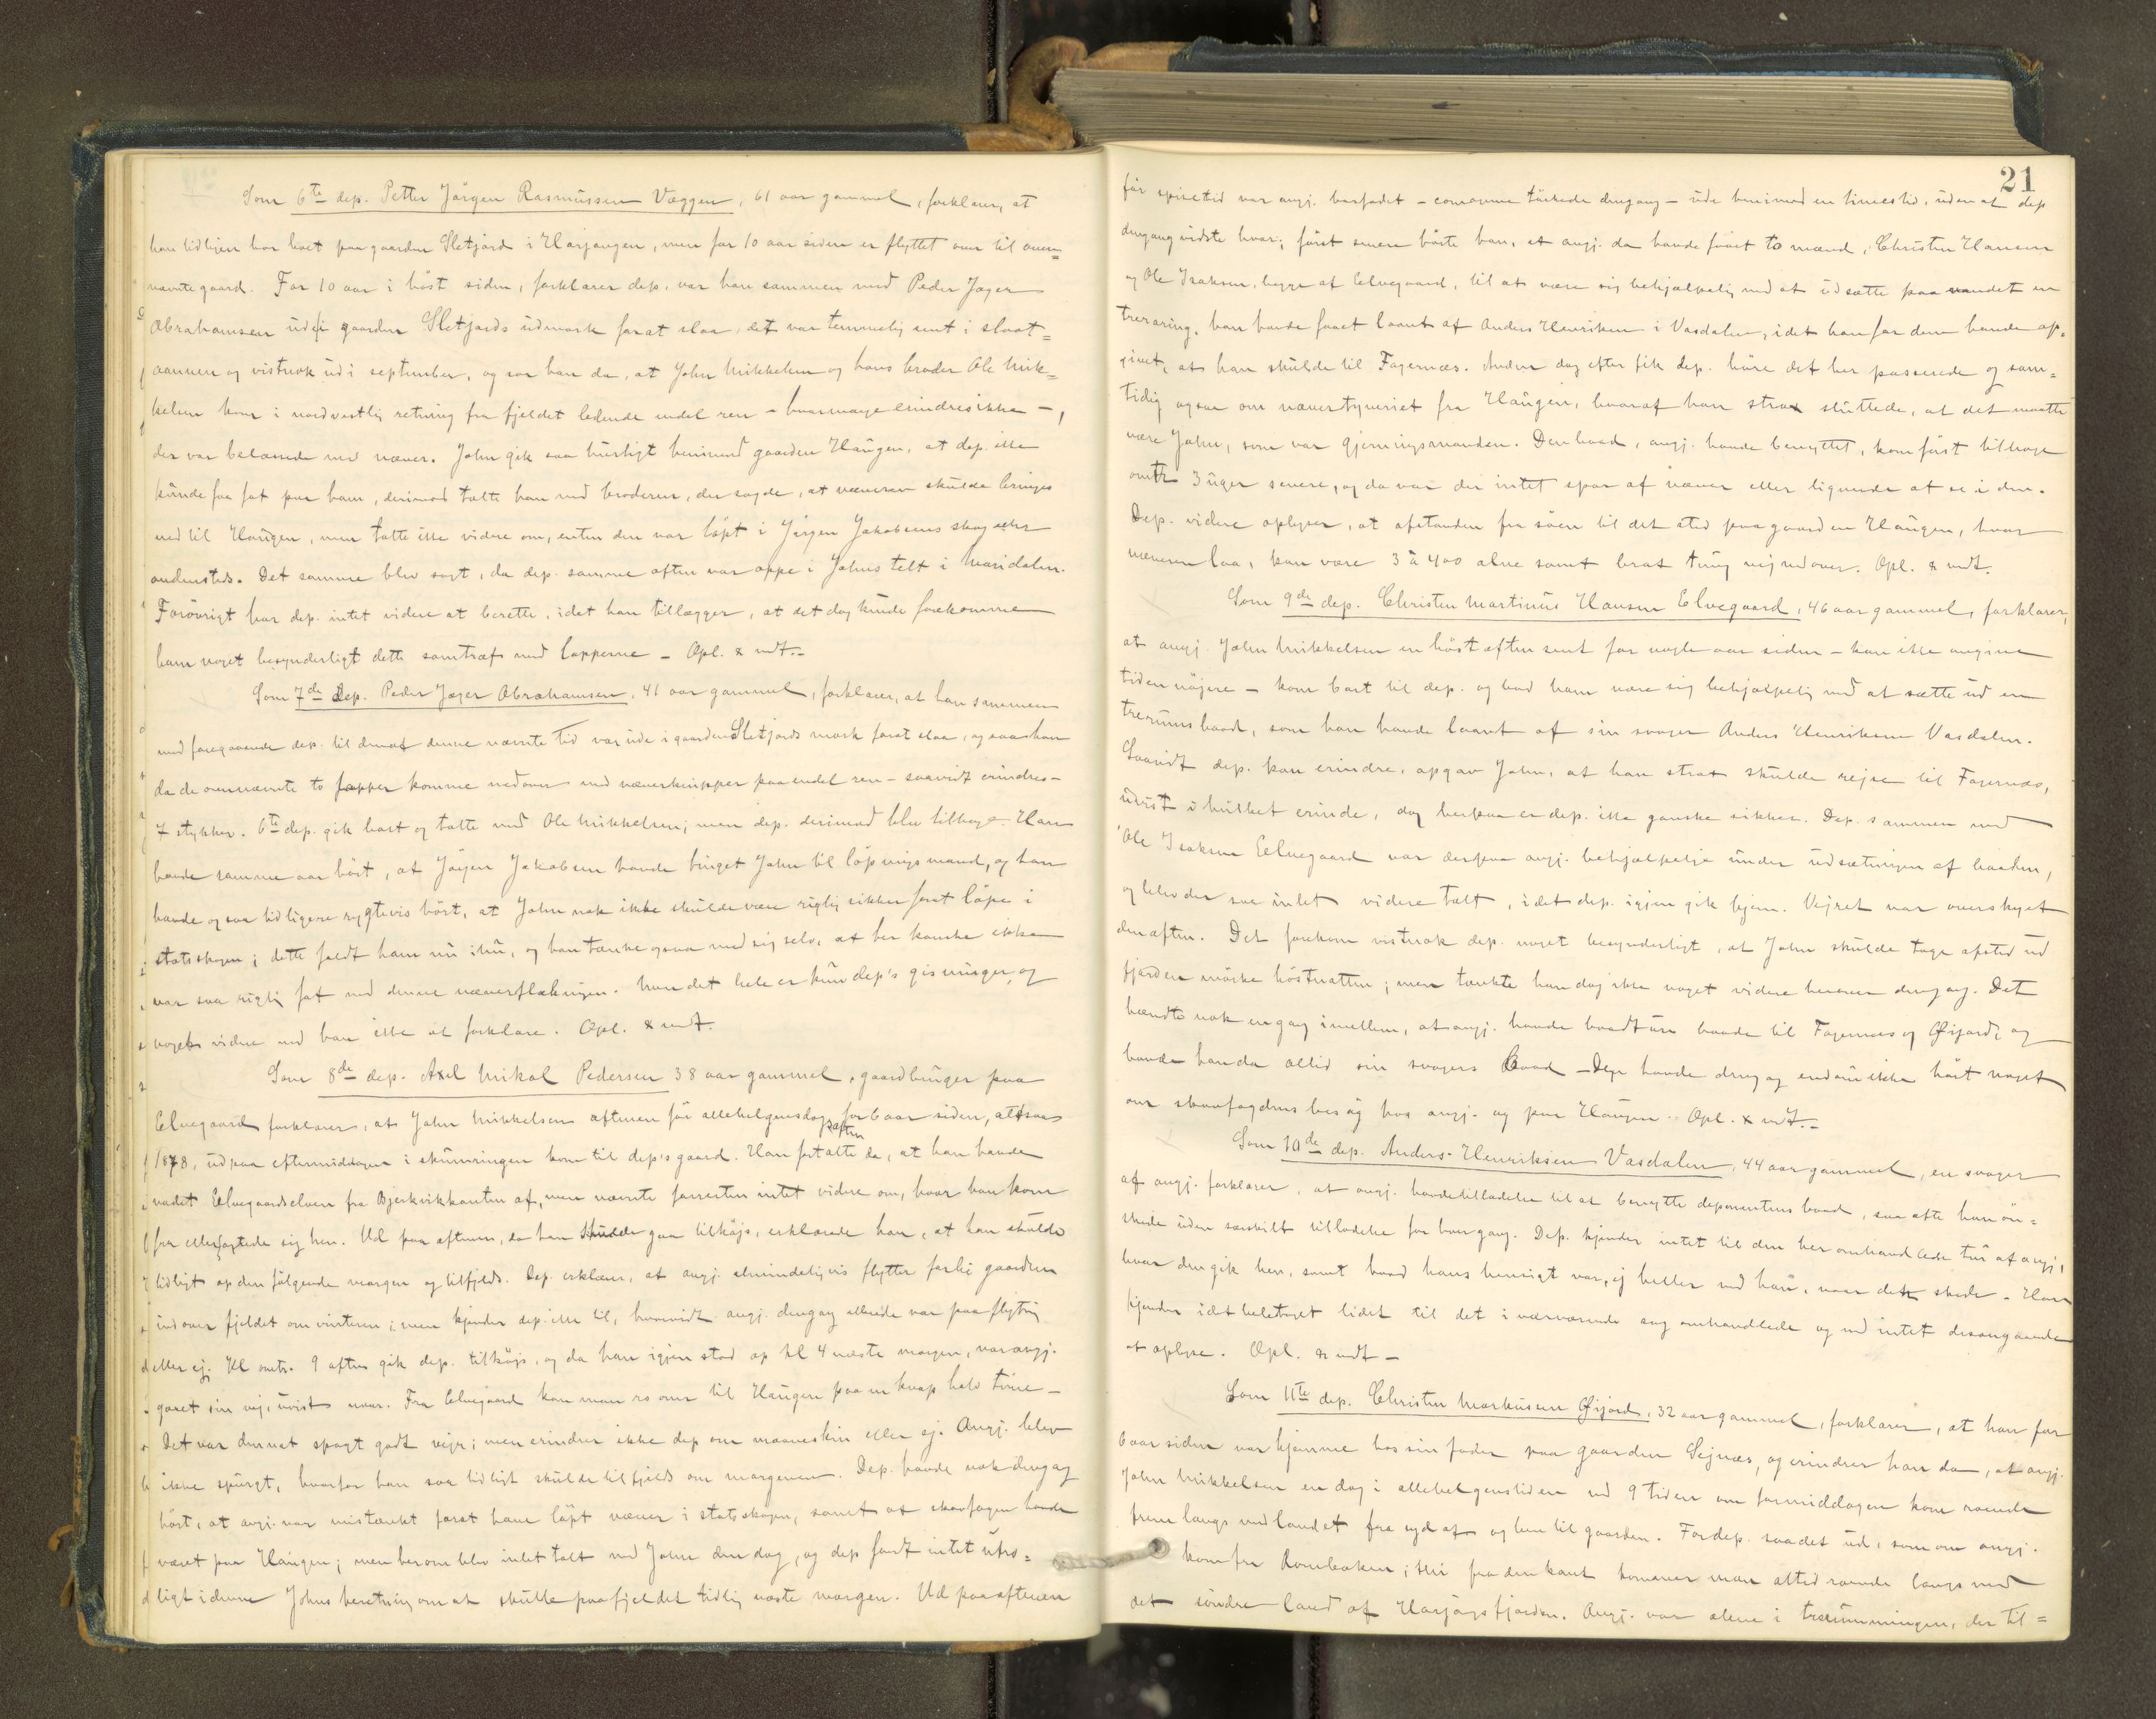 Som 6te dep. Petter Jörgen Rasmussen Væggen, 61 aar gammel, forklarer, at
han tidligere har boet paa gaarden Sletjord i Harjangen, men for 10 aar siden er flyttet over til oven=
nævnte gaard. For 10 aar i höst siden, forklarer dep. var han sammen med Peder Jæger
Abrahamsen ude i gaarden Sletjords udmark forat slaa, det var temmelig sent i slaat=
aannen og vistnok ud i september, og saa han da, at John Mikkelsen og hans broder Ole Mik=
kelsen kom i nordvestlig retning fra fjeldet ledende endel ren – hvormange erindres ikke –,
der var belæssede med næver. John gik saa hurtigt henimod gaarden Haugen, at dep. ikke
kunde faa fat paa ham, derimod talte han med broderen, der sagde, at næveren skulde bringes
ned til Haugen, men talte ikke videre om, enten den var löpt i Jörgen Jakobsens skog eller
andensteds. Det samme blev sagt, da dep. samme aften var oppe i Johns telt i Maridalen.
Forövrigt har dep. intet videre at berette, idet han tillægger, at det dog kunde forekomme
ham noget besynderligt dette samtræf med lapperne – Opl. & vedt. –
Som 7de dep. Peder Jæger Abrahamsen, 41 aar gammel, forklarer, at han sammen
med foregaaende dep. til den af denne nævnte tid var ude i gaarden Sletjords mark forat slaa, og saa han
da de ovennævnte to lapper komme nedover med næverknipper paa endel ren – saavidt erindres –
7 stykker. 6te dep. gik bort og talte med Ole Mikkelsen; men dep. derimod blev tilbage. Han
havde samme aar hört, at Jörgen Jakobsen havde bruget John til löpningsmand, og han
havde ogsaa tidligere rygtevis hört, at John nok ikke skulde være rigtig sikker forat löpe i
statsskogen; dette faldt ham nu ind, og han tænkte ogsaa med sig selv, at her kanske ikke
var saa rigtig fat med denne næverflækningen. Men det hele er kun dep's gisninger, og
noget videre ved han ikke at forklare. Opl. & vedt.
Som 8de dep. Axel Mikal Pedersen 38 aar gammel, gaardbruger paa
Elvegaard forklarer, at John Mikkelsen aftenen för allehelgensdagsaften for 6 aar siden, altsaa
1878, ud paa eftermiddagen i skumringen kom til dep's gaard. Han fortalte da, at han havde
vadet Elvegaardselven fra Bjerkvikkanten af, men nævnte forresten intet videre om, hvor han kom
fra eller agtede sig hen. Ud paa aftenen, da han skulde gaa tilköjs, erklærede han, at han skulde
tidligt op den fölgende morgen og tilfjelds. Dep. erklærer, at angj. almindeligvis flytter forbi gaarden
ind over fjeldet om vinteren; men kjender dep. ikke til, hvorvidt angj. dengang allerede var paa flytning
eller ej. Kl omtr. 9 aften gik dep. tilköjs, og da han igjen stod op kl 4 næste morgen, var angj.
gaaet sin vej, uvist naar. Fra Elvegaard kan man ro over til Haugen paa en knap halv time –
Det var den nat spagt godt vejr; men erindrer ikke dep om maaneskin eller ej. Angj. blev
ikke spurgt, hvorfor han saa tidligt skulde tilfjelds om morgenen. Dep. havde nok dengang
hört, at angj. var mistænkt forat have löpt næver i statsskogen, samt at skovfogden havde
været paa Haugen; men herom blev intet talt med John den dag, og dep fandt intet utro=
ligt i denne Johns beretning om at skulle paa fjeldet tidlig næste morgen. Ud paa aftenen
21
för spisetid var angj. barfodet – comagerne törkede dengang – ude henimod en timestid, uden at dep
dengang vidste hvor; först senere hörte han, at angj. da havde faaet to mænd, Christen Hansen
og Ole Isaksen, begge af Elvegaard, til at være sig behjælpelig med at udsætte paa vandet en
treroring, han havde faaet laant af Anders Henriksen i Vasdalen, idet han for dem havde op=
givet, at han skulde til Fagernæs. Anden dag efter fik dep. höre det her passerede og sam=
tidig ogsaa om nævertyveriet fra Haugen, hvoraf han strax sluttede, at det maatte
være John, som var gjerningsmanden. Den baad, angj. havde benyttet, kom först tilbage
omtr 3 uger senere, og da var der intet spor af næver eller lignende at se i den.
Dep. videre oplyser, at afstanden fra söen til det sted paa gaarden Haugen, hvor
næveren laa, kan være 3 à 400 alne samt brat tung vej nedover. Opl. & vedt.
Som 9de dep. Christen Martinus Hansen Elvegaard, 46 aar gammel, forklarer,
at angj. John Mikkelsen en höstaften sent for nogle aar siden – kan ikke angive
tiden nöjere – kom bort til dep. og bad ham være sig behjælpelig med at sætte ud en
trerumsbaad, som han havde laant af sin svoger Anders Henriksen Vasdalen.
Saavidt dep. kan erindre, opgav John, at han strax skulde rejse til Fagernæs,
uvist i hvilket erinde, dog herpaa er dep. ikke ganske sikker. Dep. sammen med
Ole Isaksen Elvegaard var derpaa angj. behjælpelige under udsætningen af baaden,
og blev der saa intet videre talt, idet dep. igjen gik hjem. Vejret var overskyet
den aften. Det forekom vistnok dep. noget besynderligt, at John skulde tage afsted ud
fjorden mörke höstnatten; men tænkte han dog ikke noget videre herover dengang. Det
hændte nok engang imellem, at angj. havde baadture baade til Fagernæs og Öijord, og
havde han da altid sin svogers baad – Dep havde dengang endnu ikke hört noget
om skovfogdens besög hos angj. og paa Haugen. Opl. & vedt. –
Som 10de dep. Anders Henriksen Vasdalen, 44 aar gammel, en svoger
af angj. forklarer, at angj. havde tilladelse til at benytte deponentens baad, saa ofte han ön=
skede uden særskilt tilladelse for hver gang. Dep. kjender intet til den her omhandlede tur af angj.,
hvor den gik hen, samt hvad hans hensigt var, ej heller ved han, naar den skede. Han
kjender idetheletaget lidet til det i nærværende sag omhandlede og ved intet desangaaende
at oplyse. Opl. & vedt –
Som 11te dep. Christen Markusen Öijord, 32 aar gammel, forklarer, at han for
6 aar siden var hjemme hos sin fader paa gaarden Sejnæs, og erindrer han da, at angj.
John Mikkelsen en dag i allehelgenstiden ved 9 tiden om formiddagen kom roende
frem langs med landet fra syd af og hen til gaarden. For dep. saa det ud, som om angj.
kom fra Rombaken; thi fra den kant kommer man altid roende langs med
det söndre land af Harjangsfjorden. Angj. var alene i trerumningen, der til=